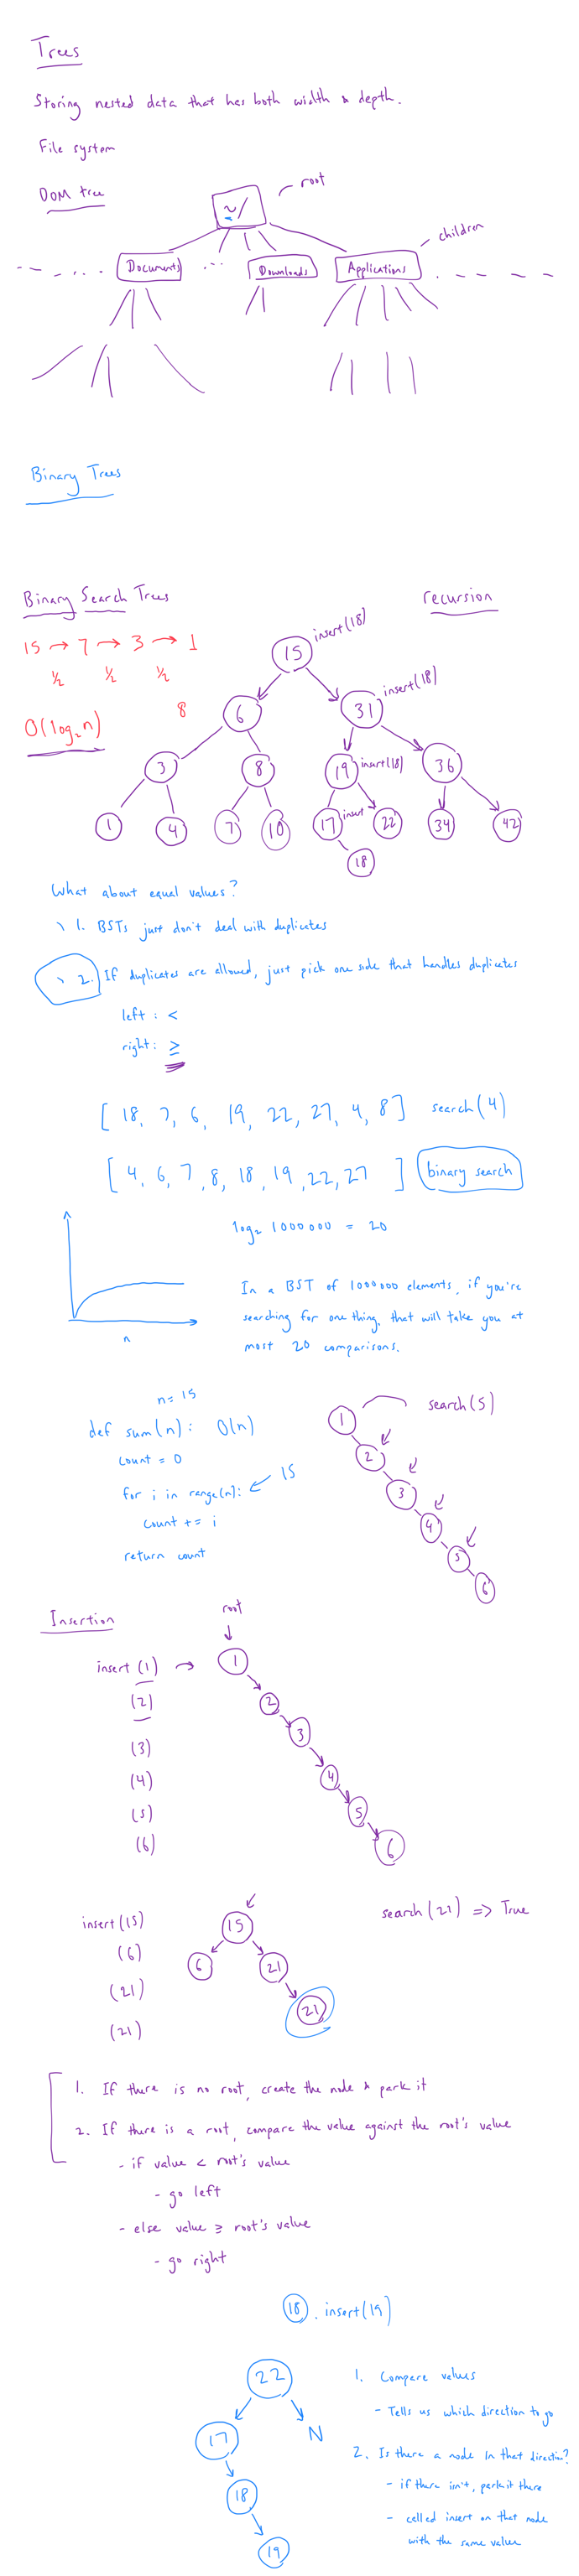 Trees
Storing nested data that has both width & depth.
File system
DOM tree
~/
root
children
Documents
...
Downloads
Applications
Binary Trees
Binary Search Trees
recursion
15 → 7 → 3 → 1
½ ½ ½
O(log₂n)
8
15 insert(18)
6 31 insert(18)
3 8 19 insert(18) 36
1 4 7 10 17 insert 22 34 42
18
What about equal values?
> 1. BSTs just don't deal with duplicates
> 2. If duplicates are allowed, just pick one side that handles duplicates
left : <
right : ≥
[ 18, 7, 6, 19, 22, 27, 4, 8 ] search(4)
[ 4, 6, 7, 8, 18, 19, 22, 27 ] binary search
log₂ 1000000 = 20
n
In a BST of 1000000 elements, if you're
searching for one thing, that will take you at
most 20 comparisons.
n = 15
def sum(n): O(n)
count = 0
for i in range(n): ← 15
count += i
return count
search(5)
1
2
3
4
5
6
Insertion
root
insert (1) → 1
(2) 2
(3) 3
(4) 4
(5) 5
(6) 6
insert(15) 15 search(21) => True
(6) 6 21
(21) 21
(21)
1. If there is no root, create the node & park it
2. If there is a root, compare the value against the root's value
- if value < root's value
- go left
- else value ≥ root's value
- go right
18 . insert(19)
22
17 N
18
19
1. Compare values
- Tells us which direction to go
2. Is there a node in that direction?
- if there isn't, park it there
- called insert on that node
with the same value